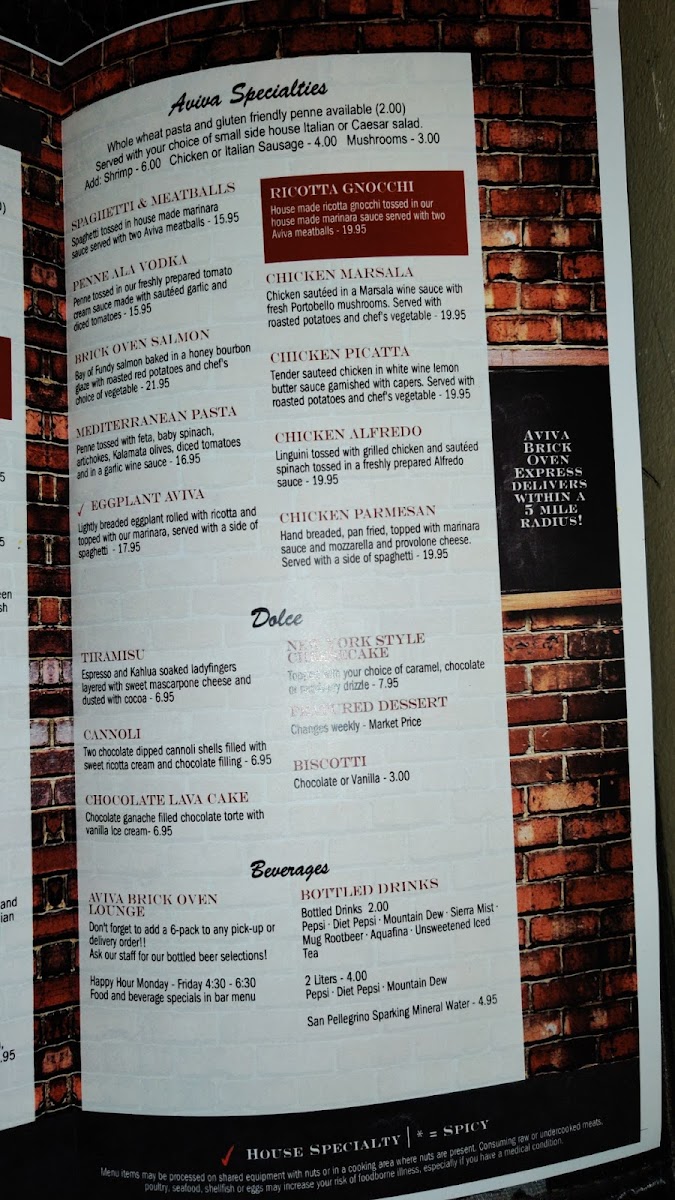 Aviva Specialties
Whole wheat pasta and gluten friendly penne available (2.00)
Served with your choice of small side house Italian or Caesar salad.
Add: Shrimp - 6.00 Chicken or Italian Sausage - 4.00 Mushrooms - 3.00
SPAGHETTI & MEATBALLS
Spaghetti tossed in house made marinara
sauce served with two Aviva meatballs - 15.95
PENNE ALA VODKA
Penne tossed in our freshly prepared tomato
cream sauce made with sautéed garlic and
diced tomatoes - 15.95
BRICK OVEN SALMON
Bay of Fundy salmon baked in a honey bourbon
glaze with roasted red potatoes and chef's
choice of vegetable - 21.95
MEDITERRANEAN PASTA
Penne tossed with feta, baby spinach,
artichokes, Kalamata olives, diced tomatoes
and in a garlic wine sauce - 16.95
✓ EGGPLANT AVIVA
Lightly breaded eggplant rolled with ricotta and
topped with our marinara, served with a side of
spaghetti - 17.95
RICOTTA GNOCCHI
House made ricotta gnocchi tossed in our
house made marinara sauce served with two
Aviva meatballs - 19.95
CHICKEN MARSALA
Chicken sautéed in a Marsala wine sauce with
fresh Portobello mushrooms. Served with
roasted potatoes and chef's vegetable - 19.95
CHICKEN PICATTA
Tender sauteed chicken in white wine lemon
butter sauce garnished with capers. Served with
roasted potatoes and chef's vegetable - 19.95
CHICKEN ALFREDO
Linguini tossed with grilled chicken and sautéed
spinach tossed in a freshly prepared Alfredo
sauce - 19.95
CHICKEN PARMESAN
Hand breaded, pan fried, topped with marinara
sauce and mozzarella and provolone cheese.
Served with a side of spaghetti - 19.95
AVIVA
BRICK
OVEN
EXPRESS
DELIVERS
WITHIN A
5 MILE
RADIUS!
Dolce
TIRAMISU
Espresso and Kahlua soaked ladyfingers
layered with sweet mascarpone cheese and
dusted with cocoa - 6.95
CANNOLI
Two chocolate dipped cannoli shells filled with
sweet ricotta cream and chocolate filling - 6.95
CHOCOLATE LAVA CAKE
Chocolate ganache filled chocolate torte with
vanilla Ice cream- 6.95
NEW YORK STYLE
CHEESECAKE
Topped with your choice of caramel, chocolate
or drizzle - 7.95
FEATURED DESSERT
Changes weekly - Market Price
BISCOTTI
Chocolate or Vanilla - 3.00
Beverages
AVIVA BRICK OVEN
LOUNGE
Don't forget to add a 6-pack to any pick-up or
delivery order!!
Ask our staff for our bottled beer selections!
Happy Hour Monday - Friday 4:30 - 6:30
Food and beverage specials in bar menu
BOTTLED DRINKS
Bottled Drinks 2.00
Pepsi · Diet Pepsi · Mountain Dew · Sierra Mist ·
Mug Rootbeer · Aquafina · Unsweetened Iced
Tea
2 Liters - 4.00
Pepsi · Diet Pepsi · Mountain Dew
San Pellegrino Sparking Mineral Water - 4.95
✓ HOUSE SPECIALTY | * = SPICY
Menu items may be processed on shared equipment with nuts or in a cooking area where nuts are present. Consuming raw or undercooked meats,
poultry, seafood, shellfish or eggs may increase your risk of foodborne illness, especially if you have a medical condition.